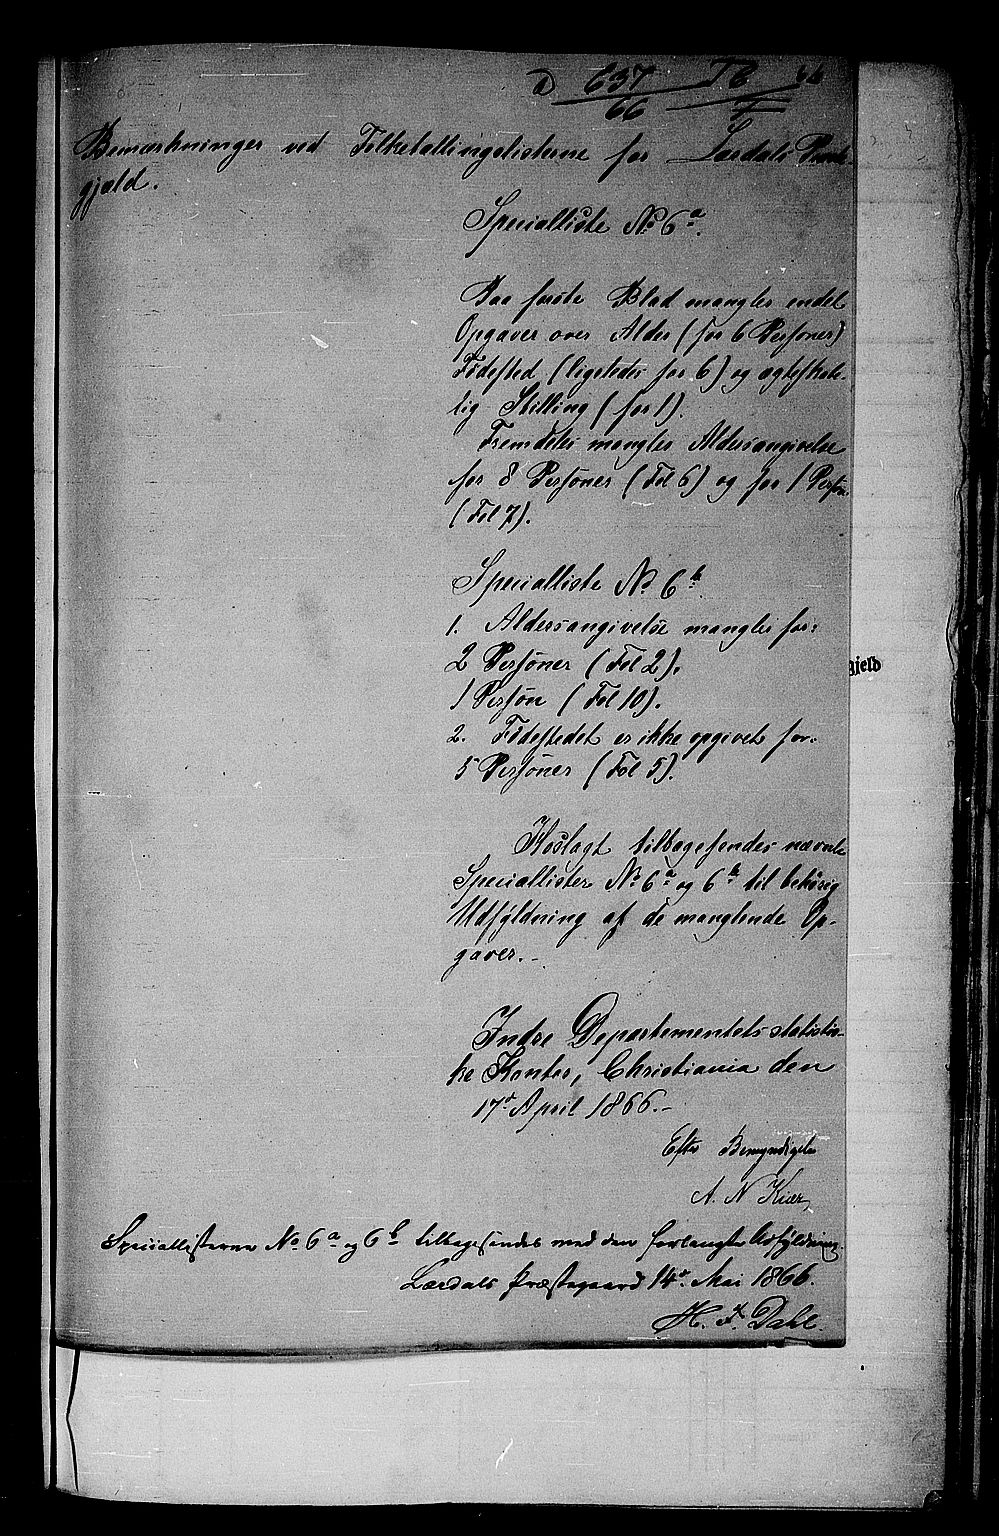 D 637
66
Bemærkninger ved Folketællingslisterne for Lærdals Præste-
gjæld.
Specialliste No 6a.
Paa første Blad mangler endel
Opgaver over Alder (for 6 Personer)
Fødested (ligeledes for 6) og ægteskabe-
lig Stilling (for 1).
Fremdeles mangler Aldersangivelse
for 8 Personer (Fol 6) og for 1 Person
(Fol 7).
Specialliste No 6b
1. Aldersangivelse mangler for:
2 Personer (Fol 2).
1 Person (Fol 10).
2. Fødestedet er ikke opgivet for:
5 Personer (Fol 5).
gjeld
Hoslagt tilbagesendes nævnte
Speciallister No 6a og 6b til behørig
Udfyldning af de manglende Op-
gaver.-
Indre Departementets statisti-
ke Kontor, Christiania den
17de April 1866.-
Efter Bemyndigelse
A. N Kiær
Speciallisterne No 6a og 6b tilbagesendes med den forlangte Udfyldning.
Lærdals Præstegaard 14de Mai 1866.
H. F. Dahl.